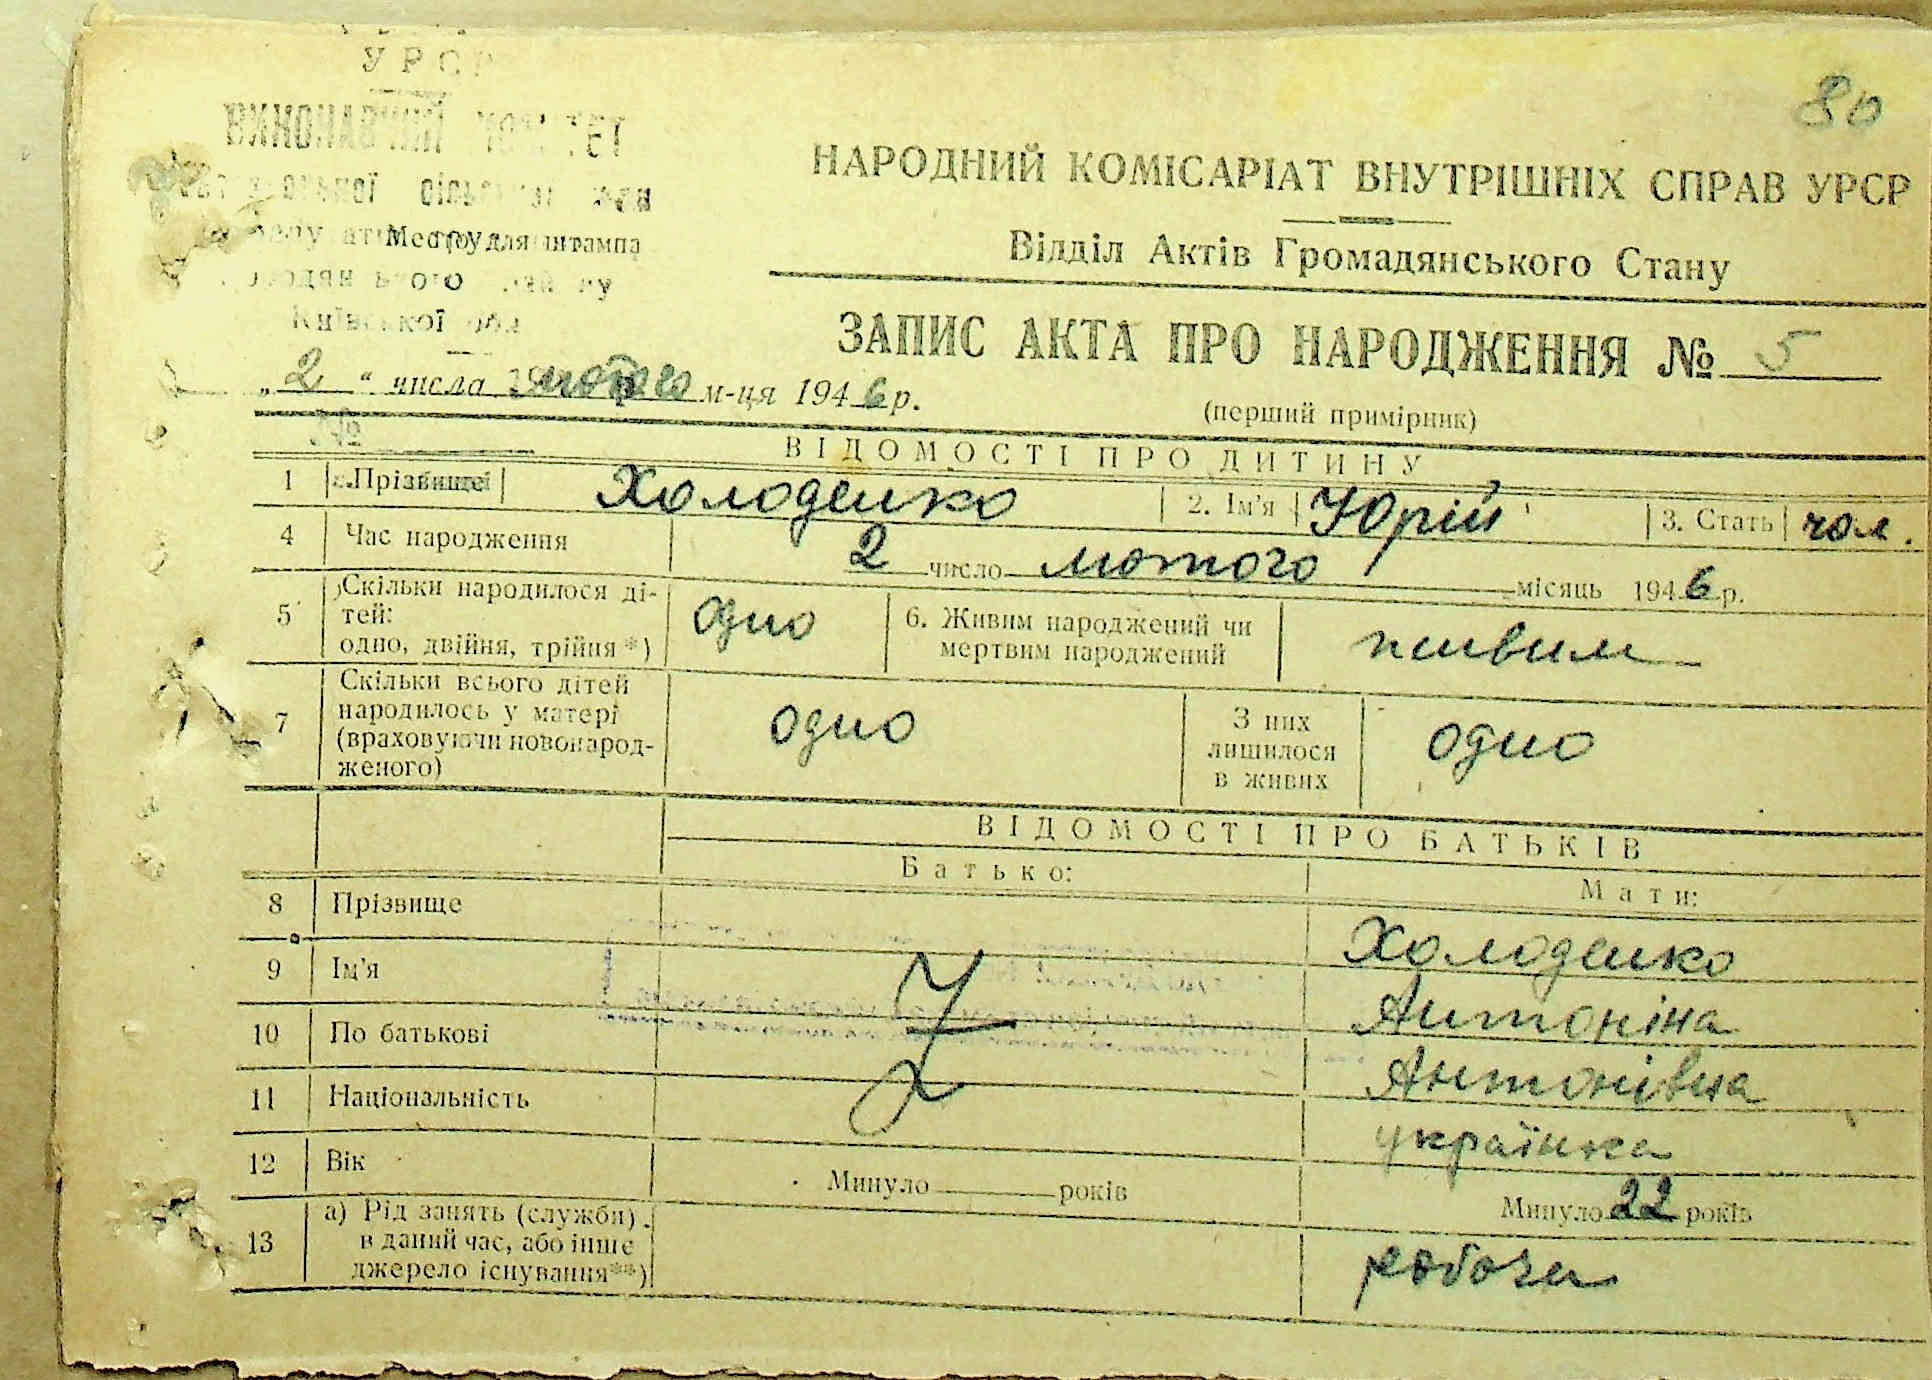 80
УРСР
НАРОДНИЙ КОМІСАРІАТ ВНУТРІШНІХ СПРАВ УРСР
Відділ Актів Громадянського Стану
Место для штампа
Київської обл
ЗАПИС АКТА ПРО НАРОДЖЕННЯ № 5
„2“ числа лютого м-ця 1946 р.
(перший примірник)
№
ВІДОМОСТІ ПРО ДИТИНУ
1 Прізвище Холоденко 2. Ім'я Юрій 3. Стать чол.
4 Час народження 2 число лютого місяць 1946 р.
5 Скільки народилося ді-
тей:
одно, двійня, трійня*) одно 6. Живим народжений чи
мертвим народжений живим
7 Скільки всього дітей
народилось у матері
(враховуючи новонарод-
женого) одно З них
лишилося
в живих одно
ВІДОМОСТІ ПРО БАТЬКІВ
Батько: Мати:
8 Прізвище Холоденко
9 Ім'я Антоніна
10 По батькові Антонівна
11 Національність українка
12 Вік Минуло років Минуло 22 років
13 а) Рід занять (служби)
в даний час, або інше
джерело існування**) робоча